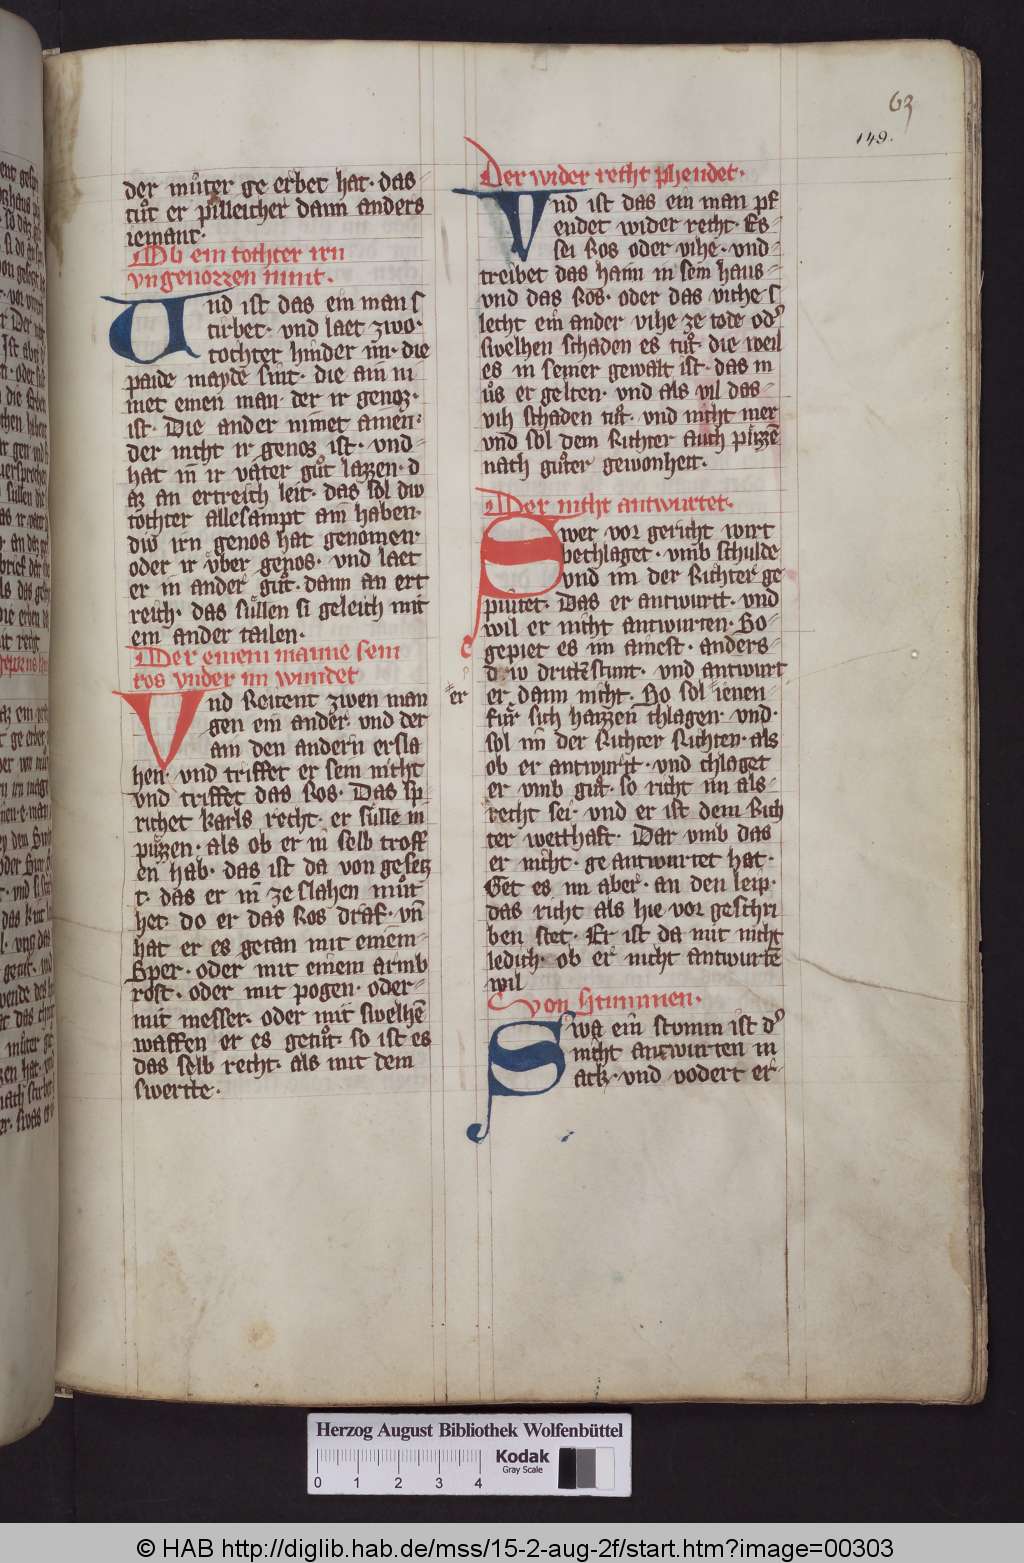 63
149.
der muͦter ge erbet hat· das
tuͦt er pilleicher dann anders
iemant·
Ob ein tochter irn
vngenozzen nimt·
Vnd ist das ein man s
tirbet· vnd laet zwo·
tochter hinder im· die
paide mayde sint· die ain ni
met einen man· der ir genoz·
ist· Die ander nimet ainen·
der nicht ir genoz ist· vnd
hat in̄ ir vater guͦt lazzen· d
az an ertreich leit· das sol diw
tochter allesampt ain haben·
diw irn genos hat genomen·
oder ir vber genos· vnd laet
er in ander guͦt· dann an ert
reich· das suͤllen si geleich mit
ein ander tailen·
Der einem manne sein
ros vnder im wundet
Vnd Reitent zwen man
gen ein ander vnd der
ain den andern ersla
hen· vnd triffet er sein nicht
vnd triffet das Ros· Das sp
richet karls recht· er suͤlle in
puͤzzen· als ob er in selb troff
en hab· das ist da von gesetz
t· das er in̄ ze slahen muͦt
het· do er das Ros draf· vn̄
hat er es getan mit einem
Sper· oder mit einem armb
rost· oder mit pogen· oder
mit messer· oder mit swelhē
waffen er es getuͦt· so ist es
das selb recht· als mit dem
swertte·
Der wider recht phendet·
Vnd ist das ein man pf
endet wider recht· Es
sei Ros oder vihe· vnd
treibet das haim in sein haus
vnd das Ros· oder das viche s
lecht ein ander vihe ze tode od'
swelhen schaden es tuͦt· die weil
es in seiner gewalt ist· das m
uͦs er gelten· vnd als vil das
vih schaden tuͦt· vnd nicht mer
vnd sol dem Richter auch puͤzzē
nach guͦter gewonheit·
Der nicht antwurtet·
Swer vor gericht wirt
bechlaget· vmb schulde
vnd im der Richter ge
piutet· Das er antwurtt· vnd
wil er nicht antwurten· So
gepiet es im ainest· anders
diw drittē stunt· vnd antwurt
er dann nicht· So sol iener
er
fuͤr sich haizzen chlagen· vnd·
sol im der Richter Richten· als
ob er antwurtt· vnd chlaget
er vmb guͦt· so richt im als
recht sei· vnd er ist dem Rich
ter wetthaft· Dar vmb das
er nicht· ge antwurtet hat·
Get es im aber· an den leip·
das richt als hie vor geschri
ben stet· Er ist da mit nicht
ledich· ob er nicht antwurtē
wil
Von Stummen·
Swa ein stumm ist d'
nicht antwurten m
ack· vnd vodert er
Herzog August Bibliothek Wolfenbüttel
0 1 2 3 4
Kodak
Gray Scale
© HAB http://diglib.hab.de/mss/15-2-aug-2f/start.htm?image=00303